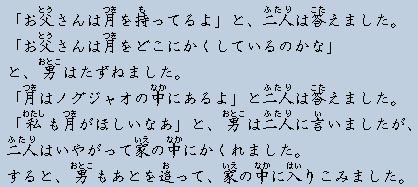 「お父さんは月を持ってるよ」と、二人は答えました。
「お父さんは月をどこにかくしているのかな」
と、男はたずねました。
「月はノグジャオの中にあるよ」と二人は答えました。
「私も月がほしいなあ」と、男は二人に言いましたが、
二人はいやがって家の中にかくれました。
すると、男もあとを追って、家の中に入りこみました。